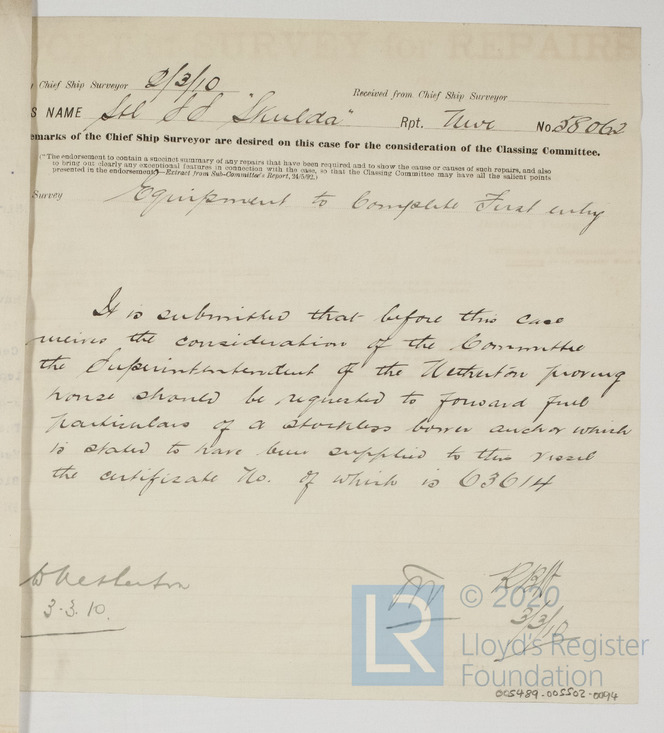 REPORT of SURVEY for REPAIRS
Chief Ship Surveyor 2/3/10 Received from Chief Ship Surveyor
S NAME Stl SS "Skulda" Rpt. Nwc No. 58062
emarks of the Chief Ship Surveyor are desired on this case for the consideration of the Classing Committee.
("The endorsement to contain a succinct summary of any repairs that have been required and to show the cause or causes of such repairs, and also
to bring out clearly any exceptional features in connection with the case, so that the Classing Committee may have all the salient points
presented in the endorsement."—Extract from Sub-Committee's Report, 24/5/92.)
Survey Equipment to Complete First entry
It is submitted that before this case
the consideration of the Committee
the Superintendent of the Netherton proving
house should be requested to forward full
particulars of a stockless bower anchor which
is stated to have been supplied to this vessel
the certificate No. of which is 63614
Netherton
3.3.10.
3/3/10
© 2020
LR
Lloyd's Register
Foundation
005489-005502-0094